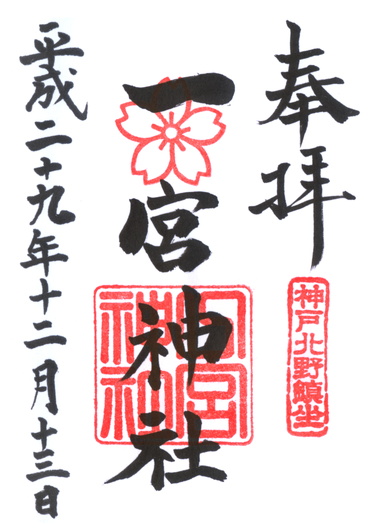 奉拝
神戸北野鎮坐
一宮神社
一宮神社
平成二十九年十二月十三日